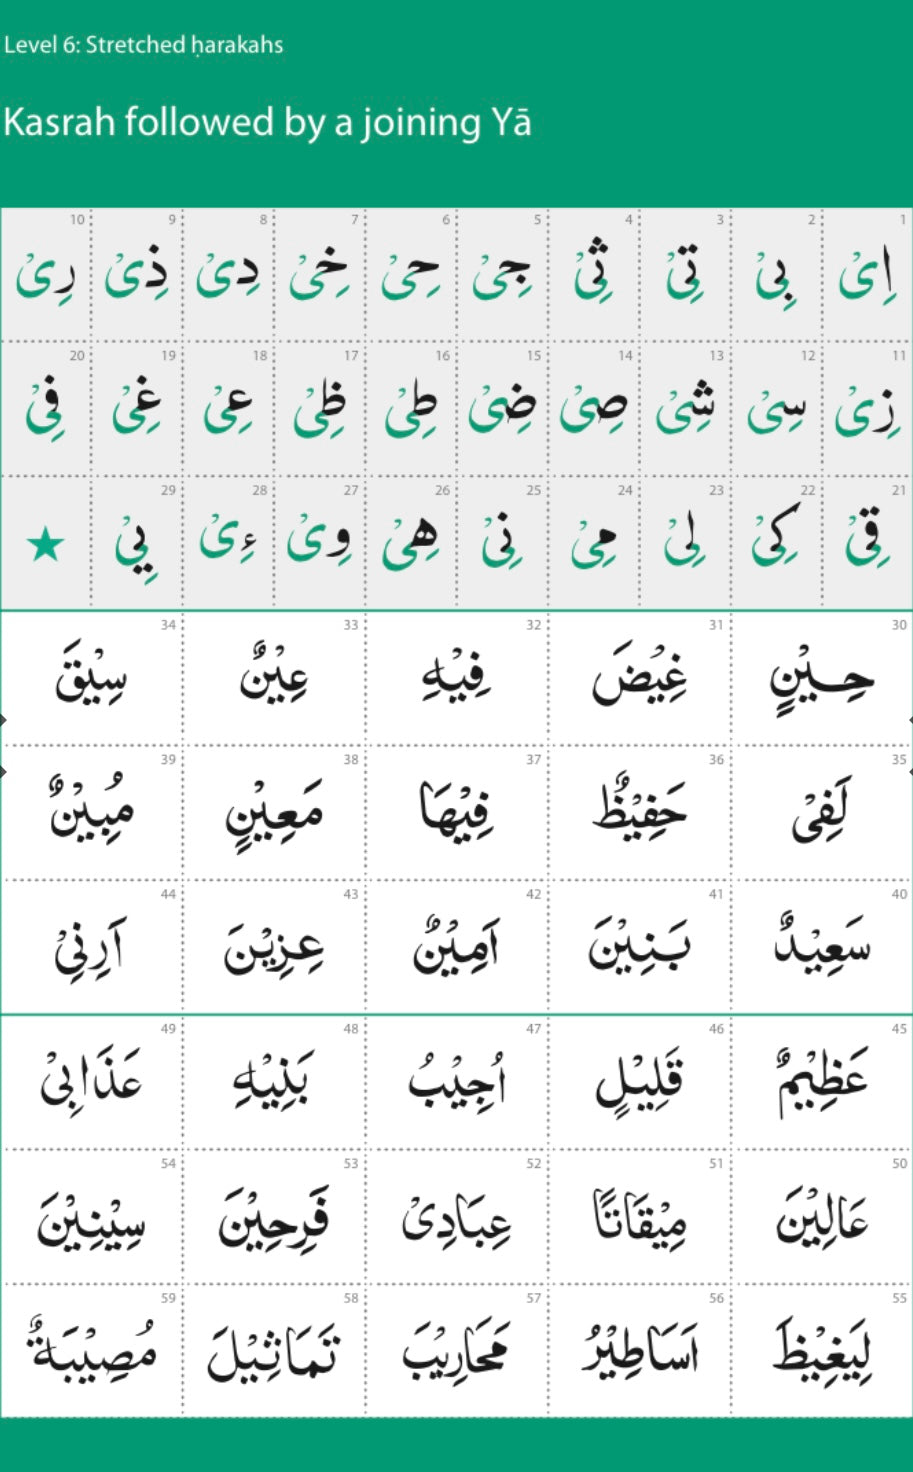 Level 6: Stretched ḥarakahs
Kasrah followed by a joining Yā
1 2 3 4 5 6 7 8 9 10
اِیْ بِیْ تِیْ ثِیْ جِیْ حِیْ خِیْ دِیْ ذِیْ رِیْ
11 12 13 14 15 16 17 18 19 20
زِیْ سِیْ شِیْ صِیْ ضِیْ طِیْ ظِیْ عِیْ غِیْ فِیْ
21 22 23 24 25 26 27 28 29
قِیْ کِیْ لِیْ مِیْ نِیْ هِیْ وِیْ ءِیْ يِیْ ★
30 31 32 33 34
حِيْنٍ غِيْضَ فِيْهِ عِيْنٌ سِيْقَ
35 36 37 38 39
لَفِیْ حَفِيْظٌ فِيْهَا مَعِيْنٍ مُبِيْنٌ
40 41 42 43 44
سَعِيْدٌ بَنِيْنَ اَمِيْنٌ عِزِيْنَ اَرِنِیْ
45 46 47 48 49
عَظِيْمٌ قَلِيْلٍ اُجِيْبُ بَنِيْهِ عَذَابِیْ
50 51 52 53 54
عَالِيْنَ مِيْقَاتًا عِبَادِیْ فَرِحِيْنَ سِيْنِيْنَ
55 56 57 58 59
لِيَغِيْظَ اَسَاطِيْرُ مَحَارِيْبَ تَمَاثِيْلَ مُصِيْبَةٌ